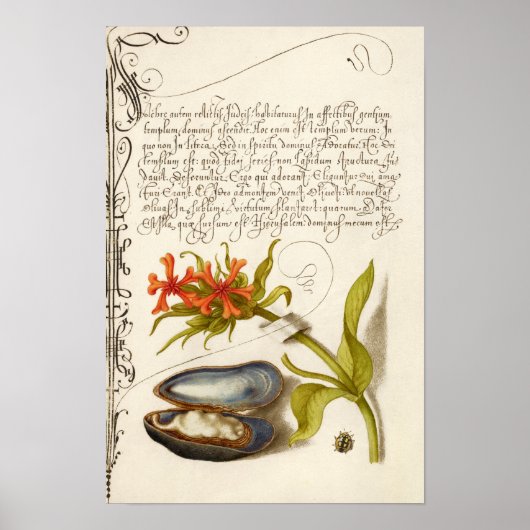 autem relictis Judeis habitaturus In affectibus gentium
templum dominus ascendit. Hoc enim est templum verum: In
quo non In litera, Sed in spiritu dominus Adoratur. Hoc Dei
templum est: quod fidei series non lapidum structura fu
davit. Deseruntur. Ergo qui adorant: Eliguntur Qui ama
turi Erant. Et Ideo admontem venit. Oliueti: Vt nouellas
Oliuas In sublimi virtutum plantaret: quarum. Mater
Est Illa, quæ sursum est Hierusalem: dominus mecum est.